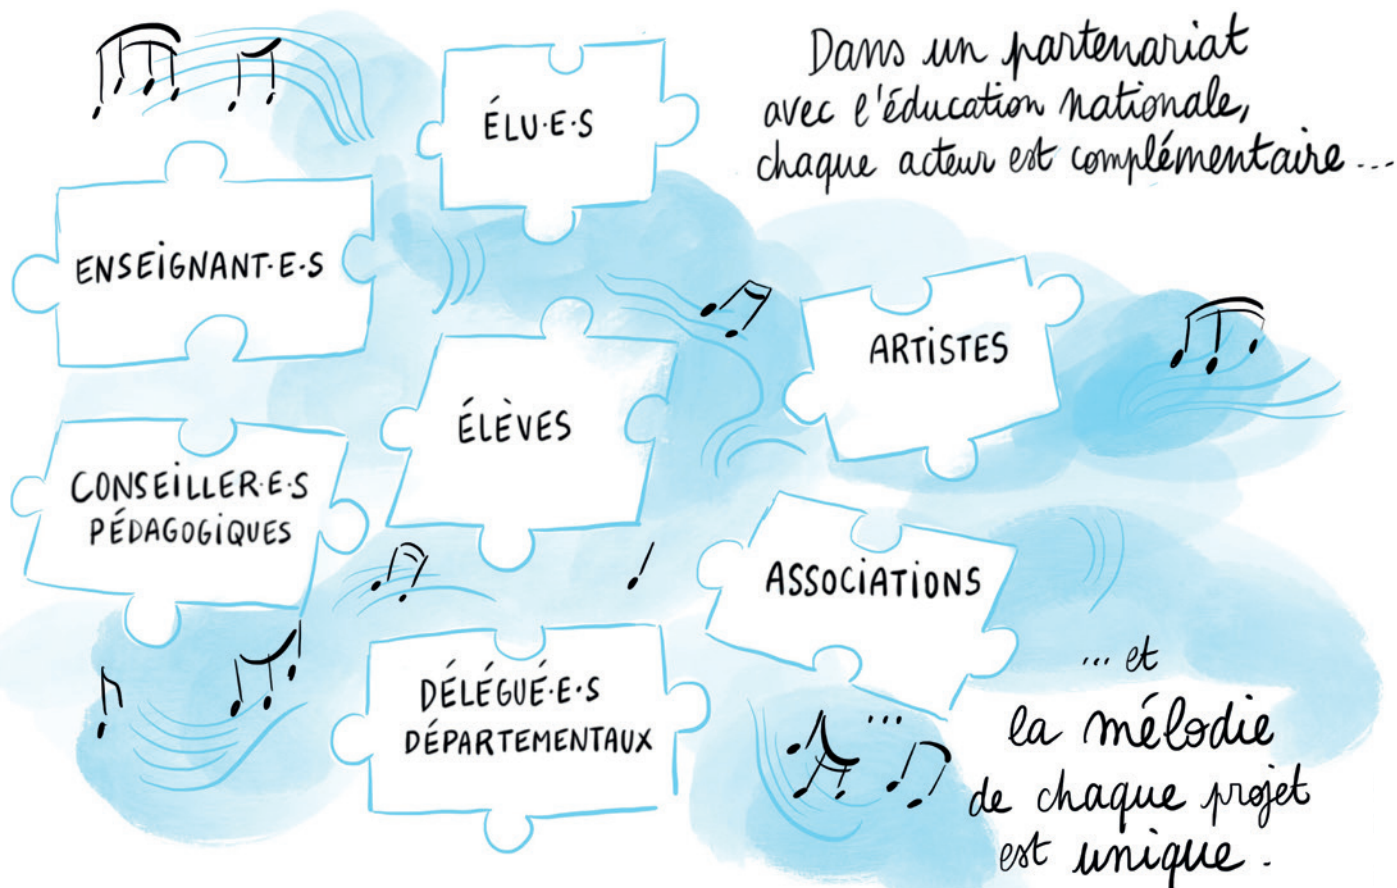 Dans un partenariat
avec l'éducation nationale,
chaque acteur est complémentaire ...
ÉLU·E·S
ENSEIGNANT·E·S
ARTISTES
ÉLÈVES
CONSEILLER·E·S
PÉDAGOGIQUES
ASSOCIATIONS
DÉLÉGUÉ·E·S
DÉPARTEMENTAUX
...
... et
la mélodie
de chaque projet
est unique.